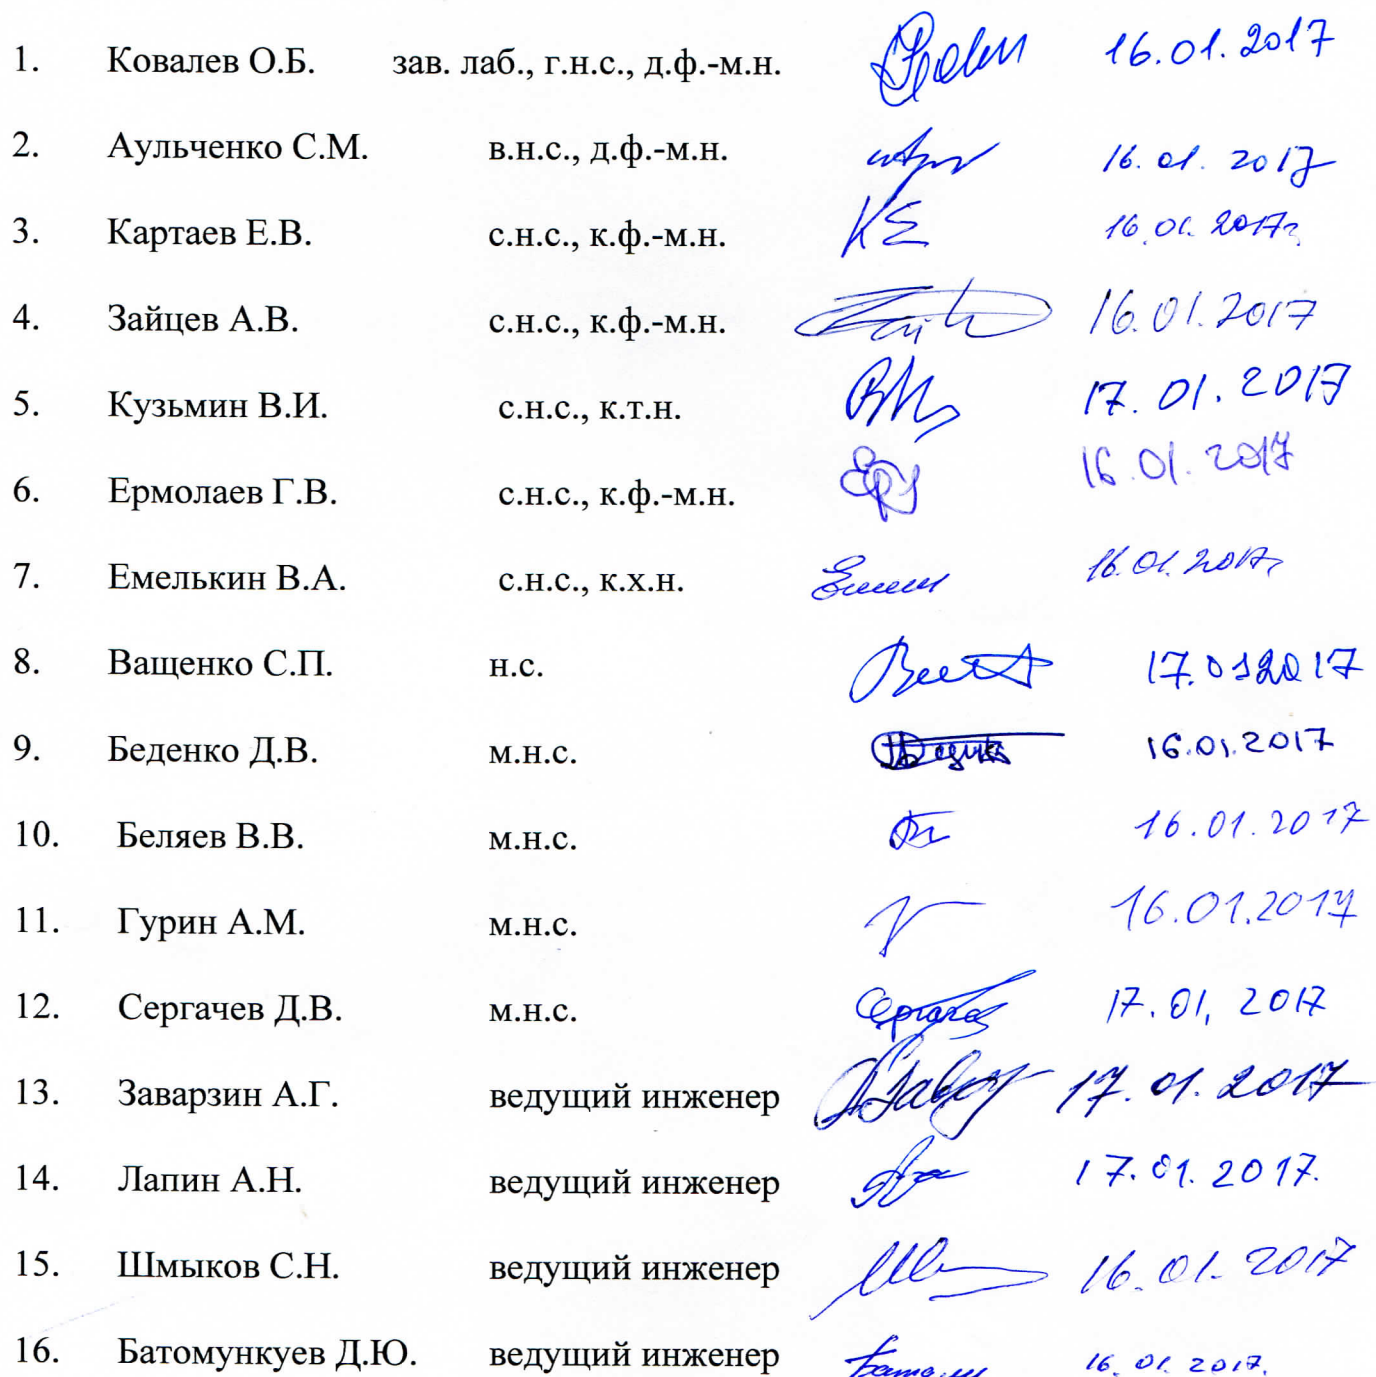 1. Ковалев О.Б. зав. лаб., г.н.с., д.ф.-м.н. 16.01.2017
2. Аульченко С.М. в.н.с., д.ф.-м.н. 16.01.2017
3. Картаев Е.В. с.н.с., к.ф.-м.н. КЕ 16.01.2017г.
4. Зайцев А.В. с.н.с., к.ф.-м.н. 16.01.2017
5. Кузьмин В.И. с.н.с., к.т.н. 17.01.2017
6. Ермолаев Г.В. с.н.с., к.ф.-м.н. 16.01.2017
7. Емелькин В.А. с.н.с., к.х.н. 16.01.2017г
8. Ващенко С.П. н.с. 17.012017
9. Беденко Д.В. м.н.с. 16.01.2017
10. Беляев В.В. м.н.с. 16.01.2017
11. Гурин А.М. м.н.с. 16.01.2017
12. Сергачев Д.В. м.н.с. 17.01, 2017
13. Заварзин А.Г. ведущий инженер 17.01.2017
14. Лапин А.Н. ведущий инженер 17.01.2017.
15. Шмыков С.Н. ведущий инженер 16.01.2017
16. Батомункуев Д.Ю. ведущий инженер 16.01.2017.